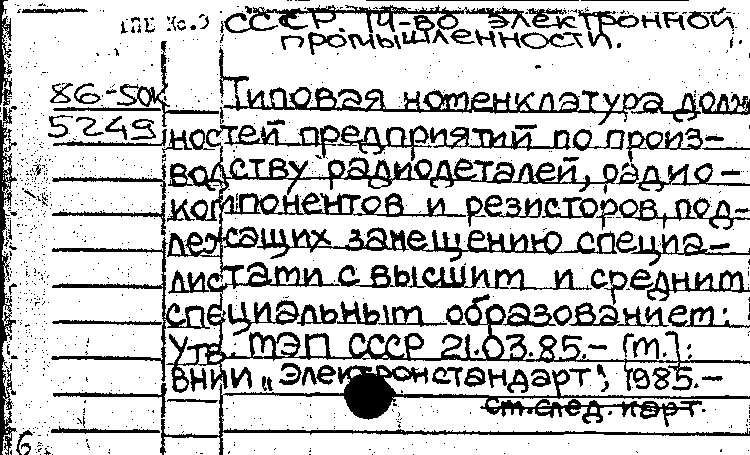 ГПБ Кс.3
СССР. М-во электронной
промышленности.
86-50к
5249
Типовая номенклатура долж
ностей предприятий по произ-
водству радиодеталей, радио-
компонентов и резисторов, под-
лежащих замещению специа-
листами с высшим и средним
специальным образованием:
Утв. МЭП СССР 21.03.85.- [М.]:
ВНИИ "Электронстандарт", 1985.-
см.след. карт.
6